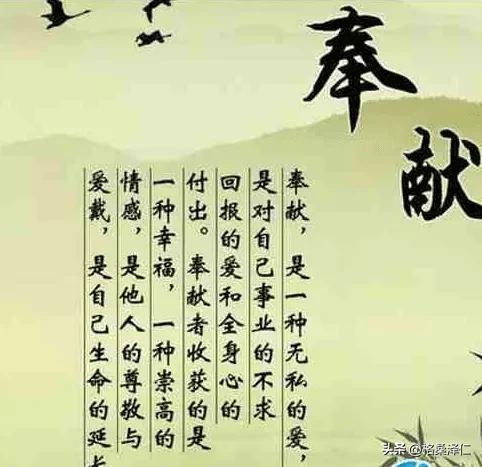 奉献
奉献，是一种无私的爱，
是对自己事业的不求
回报的爱和全身心的
付出。奉献者收获的是
一种幸福，一种崇高的
情感，是他人的尊敬与
爱戴，是自己生命的延长
头条 @格桑泽仁